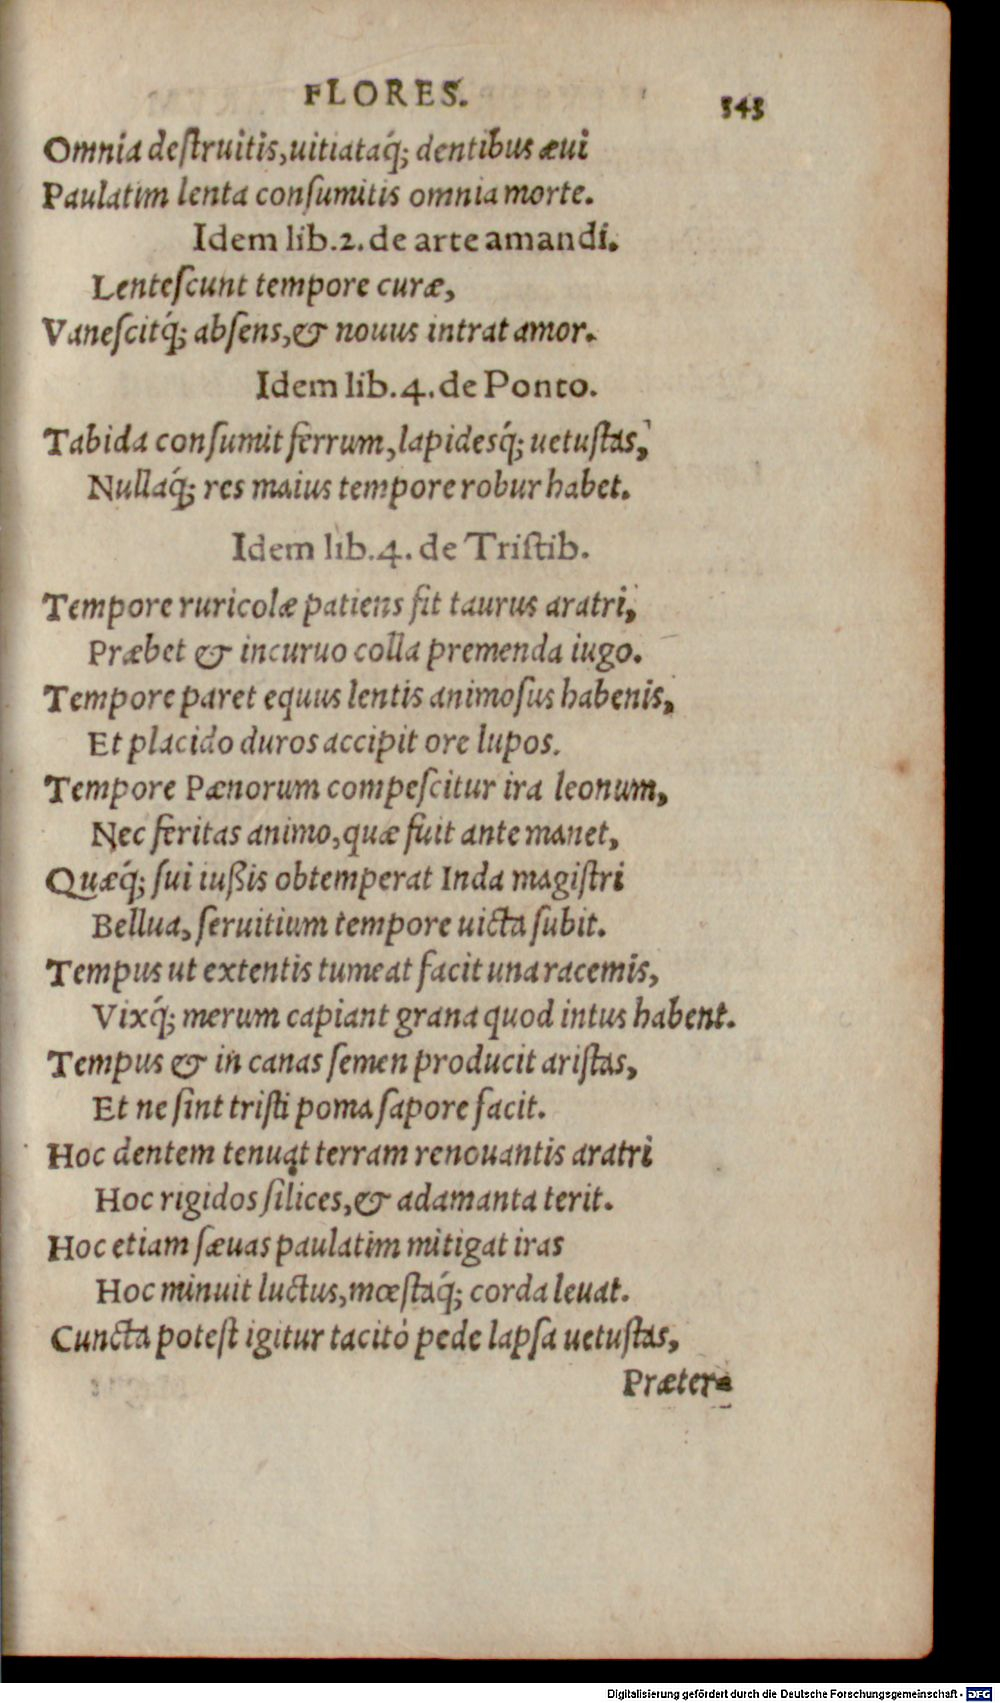 FLORES.
343
Omnia deſtruitis,uitiataq́; dentibus æui
Paulatim lenta conſumitis omnia morte.
Idem lib.2.de arte amandi.
Lenteſcunt tempore curæ,
Vaneſcitq́; abſens,& nouus intrat amor.
Idem lib.4.de Ponto.
Tabida conſumit ferrum,lapidesq́; uetuſtas,
Nullaq́; res maius tempore robur habet.
Idem lib.4. de Triſtib.
Tempore ruricolæ patiens fit taurus aratri,
Præbet & incuruo colla premenda iugo.
Tempore paret equus lentis animoſus habenis,
Et placido duros accipit ore lupos.
Tempore Pænorum compeſcitur ira leonum,
Nec feritas animo,quæ fuit ante manet,
Quæq́; ſui iußis obtemperat Inda magiſtri
Bellua, ſeruitium tempore uicta ſubit.
Tempus ut extentis tumeat facit una racemis,
Vixq́; merum capiant grana quod intus habent.
Tempus & in canas ſemen producit ariſtas,
Et ne ſint triſti poma ſapore facit.
Hoc dentem tenuat terram renouantis aratri
Hoc rigidos ſilices,& adamanta terit.
Hoc etiam ſæuas paulatim mitigat iras
Hoc minuit luctus,mœſtaq́; corda leuat.
Cuncta poteſt igitur tacito pede lapſa uetuſtas,
Præter-
Digitalisierung gefördert durch die Deutsche Forschungsgemeinschaft - DFG